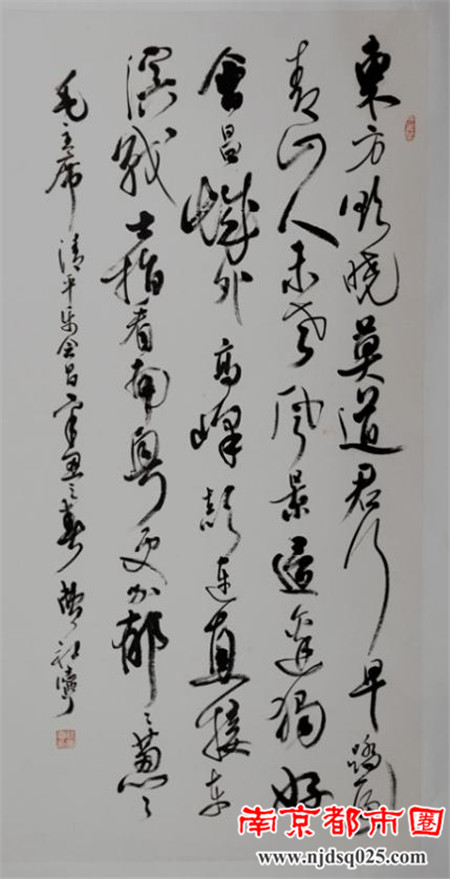 東方欲晓莫道君行早踏遍
青山人未老風景這邊獨好
會昌城外高峰顛連直接东
溟戰士指看南粤更加郁々蔥々
毛主席清平乐会昌之春
南京都市圈
www.njdsq025.com